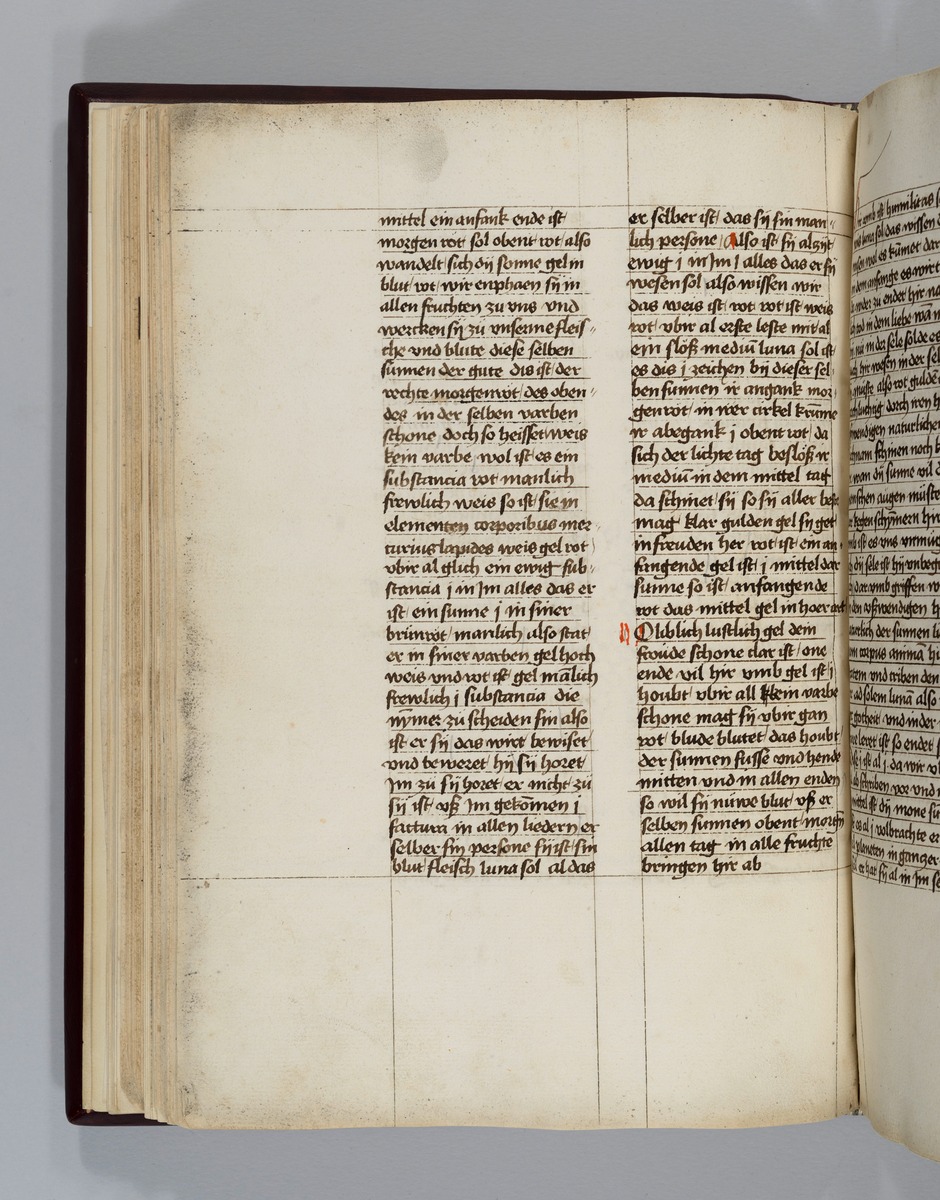 mittel ein anfank ende ist
morgen rot sol obent rot also
wandelt sich dij sonne gel in
blut rot wir enphaen sij in
allen fruchten zu vns vnd
wercken sij zu vnserme fleis-
che vnd blute diese selben
sunnen der gute dis ist der
rechte morgenrot des oben-
des in der selben varben
schone doch so heisset weis
kein varbe wol ist es ein
substancia rot manlich
frewlich weis so ist sie in
elementen corporibus mer-
curius lapides weis gel rot
vbir al glich ein ewig sub-
stancia j in Jm alles das er
ist ein sunne j in siner
brunrot manlich also stat
er in siner varben gel hoch
weis vnd rot ist gel mālich
frewlich j substancia die
nȳmer zu scheiden sin also
ist er sij das wirt bewiset
vnd beweret hij sij horet
Jm zu sij horet er nicht zu
sij ist vß Jm gekomen j
factura in allen liedern er
selber sin persone sij ist sin
blut fleisch luna sol al das
er selber ist das sij sin man-
lich persone Also ist sij alzijt
ewig j in Jm j alles das er sij
wesen sol also wissen wir
das weis ist rot rot ist weis
rot vbir al erste leste mit al
ein slöß mediū luna sol ist
es dis j zeichen bij dieser sel
ben sunnen ir angank mor
genrot in irer cirkel krūme
ir abegank j obent rot da
sich der lichte tag beslöß ir
mediū in dem mittel tag
da schinet sij so sij aller beste
mag klar gulden gel sij get
in freuden her rot ist ein an
fangende gel ist j mittel dar
sunne so ist anfangende
rot das mittel gel in hoer art
O liblich lustlich gel dem
froude schone clar ist one
ende vil hir vmb gel ist j
houbt vbir all kein varbe
schone mag sij vbir gan
rot blude blutet das houbt
der sunnen fusse vnd hende
mitten vnd in allen enden
so wil sij nuwe blut vß er
selben sunnen obent morgē
allen tag in alle fruchte
bringen hir ab